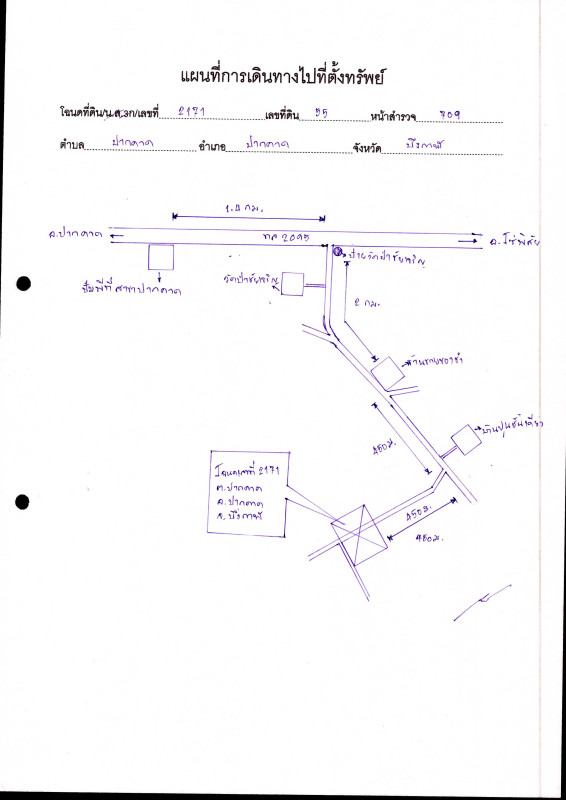 แผนที่การเดินทางไปที่ตั้งทรัพย์
โฉนดที่ดิน/น.ส.3ก/เลขที่ 2171 เลขที่ดิน 55 หน้าสำรวจ 709
ตำบล ปากคาด อำเภอ ปากคาด จังหวัด บึงกาฬ
1.8 กม.
อ.ปากคาด
ทล 2095
อ.โซ่พิสัย
ป้ายวัดป่าชัยเจริญ
วัดป่าชัยเจริญ
ปั๊มพีที สาขาปากคาด
2 กม.
ร้านขายของชำ
450 ม.
บ้านปูนชั้นเดียว
โฉนดเลขที่ 2171
ต.ปากคาด
อ.ปากคาด
จ.บึงกาฬ
450 ม.
450 ม.